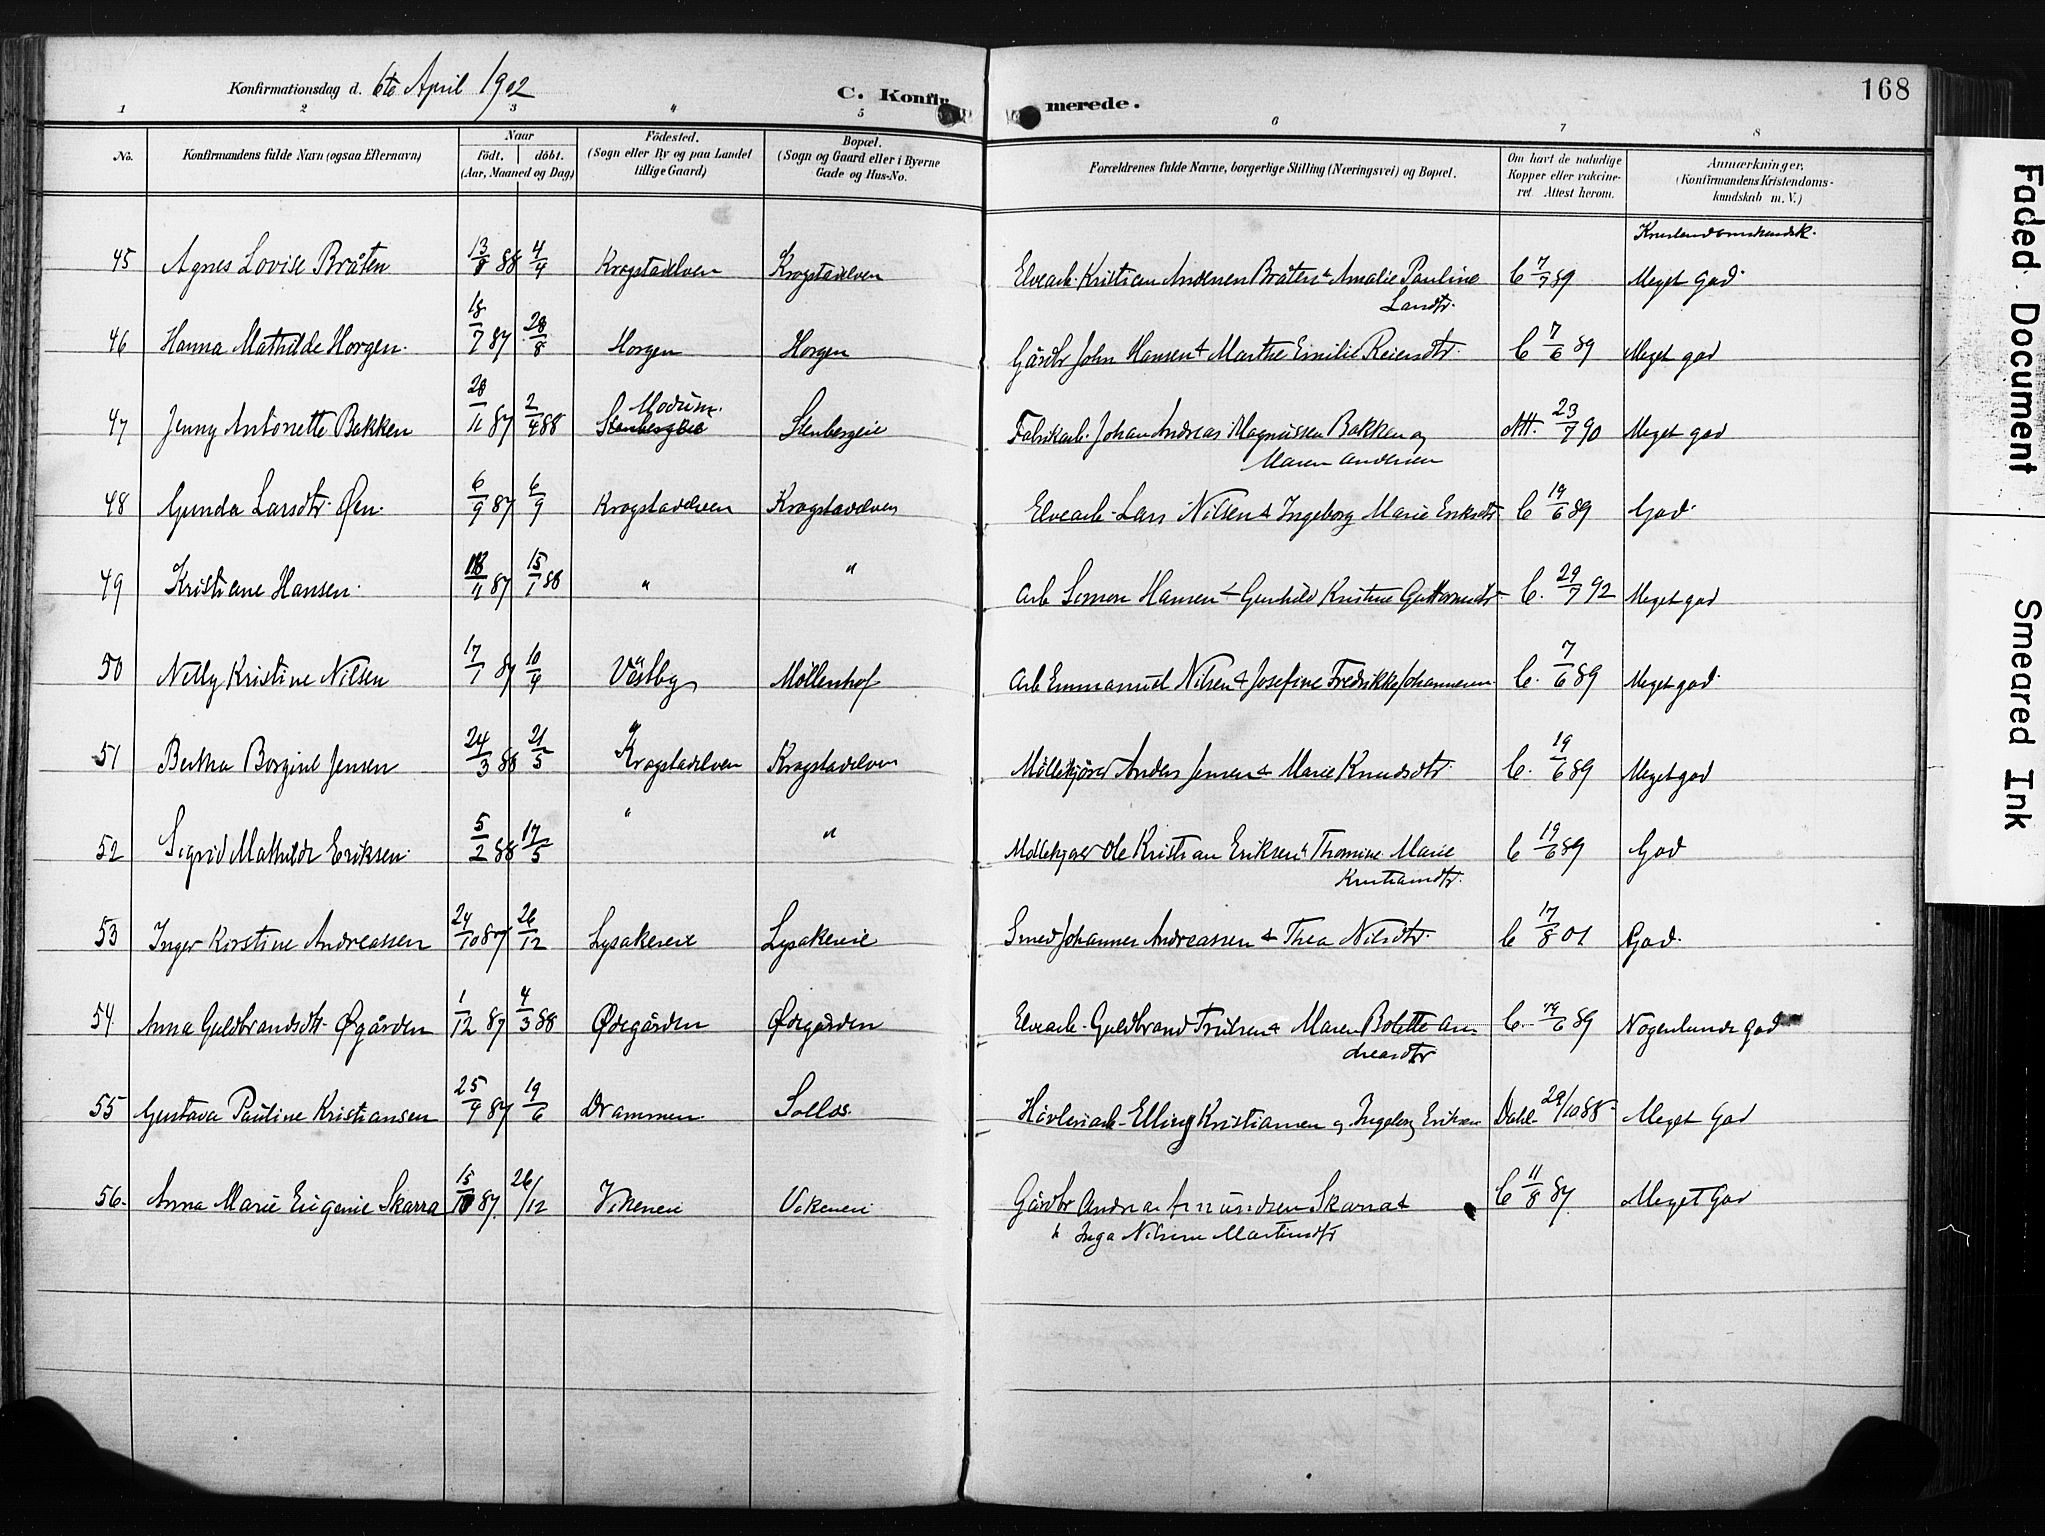 Konfirmationsdag d. 6te April 1902
C. Konfir merede.
168
1 2 3 4 5 6 7 8
No. Konfirmandens fulde Navn (ogsaa Efternavn) Naar födt. döbt. (Aar, Maaned og Dag) Födested. (Sogn eller By og paa Landet tillige Gaard) Bopæl. (Sogn og Gaard eller i Byerne Gade og Hus-No. Forældrenes fulde Navne, borgerlige Stilling (Næringsvei) og Bopæl. Om havt de naturlige Kopper eller vakcineret. Attest herom. Anmærkninger, (Konfirmandens Kristendomskundskab m. V.)
45 Agnes Lovise Bråten 88 4/4 Krogstadelven Krogstadelven Elvearb. Kristian Andersen Bråten & Amalie Pauline C 7/7 89 Meget God
Larsdtr.
46 Hanna Mathilde Horgen. 18/7 87 28/8 Horgen Horgen Gårdbr John Hansen & Marthe Emilie Reiersdtr. C 7/6 89 Meget god
Modum.
47 Jenny Antonette Bakken 28/11 87 2/4 88 Stenbergeie Stenbergeie Fabrikarb. Johan Andreas Magnussen Bakken og Att. 23/7 90 Meget god
Maren Andersen
48 Gunda Larsdtr. Øen. 6/9 87 6/9 Krogstadelven Krogstadelven Elvearb. Lars Nilsen & Ingeborg Marie Eriksdtr. C 19/6 89 God
49 Kristiane Hansen. 87 15/1 88 " " Arb Simon Hansen & Gunhild Kristine Guttormsdtr. C. 29/7 92 Meget god
50 Nelly Kristine Nilsen 17/1 87 10/4 Våstby Möllenhof Arb Emmanuel Nilsen & Josefine Fredrikke Johannesen C. 7/6 89 Meget god
51 Bertha Borgine Jensen 24/3 88 21/5 Krogstadelven Krogstadelven Möllekjörer Anders Jensen & Marie Knudsdtr. C. 19/6 89 Meget god
52 Sigrid Mathilde Eriksen 5/2 88 17/5 " " Möllekjører Ole Kristian Eriksen & Thomine Marie C 19/6 89 God
Kristiansdtr.
53 Inger Kirstine Andreassen 24/10 87 26/12 Lysakereie Lysakereie Smed Johannes Andreassen & Thea Nilsdtr. C 17/8 01 God.
54 Anna Guldbrandsdtr. Øgården 1/12 87 4/3 88 Ødegården Ødegården Elvearb. Guldbrand Trulsen & Maren Bolette An- C. 19/6 89 Nogenlunde God
dreasdtr
55 Gustava Pauline Kristiansen 25/4 87 19/6 Drammen Solløs Hövleriarb. Elling Kristiansen og Ingeborg Eriksen Dahl. 29/10 88 Meget God
56. Anna Marie Eugenie Skarra 15/10 87. 26/12 Vikeneie Vikeneie Gårdbr Andreas Amundsen Skarra & C 11/8 87. Meget God
Inga Nilsine Martinsdtr
Faded Document
Smeared Ink